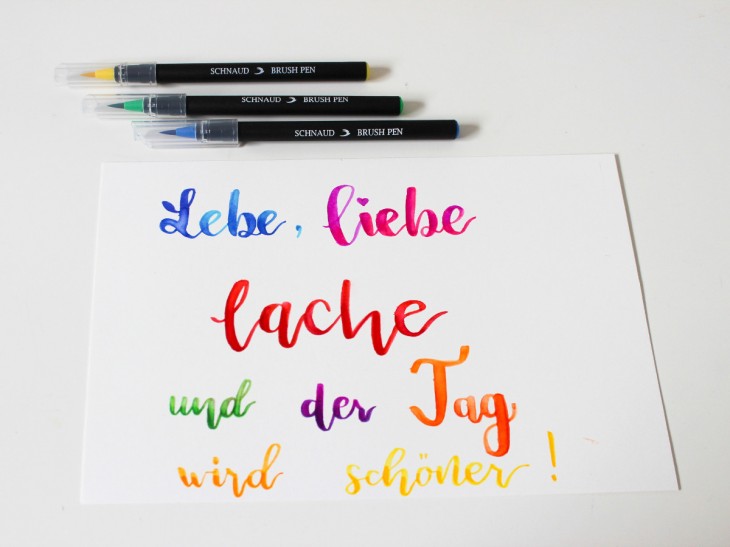 SCHNAUD BRUSH PEN
SCHNAUD BRUSH PEN
SCHNAUD BRUSH PEN
Lebe, liebe
lache
und der Tag
wird schöner!